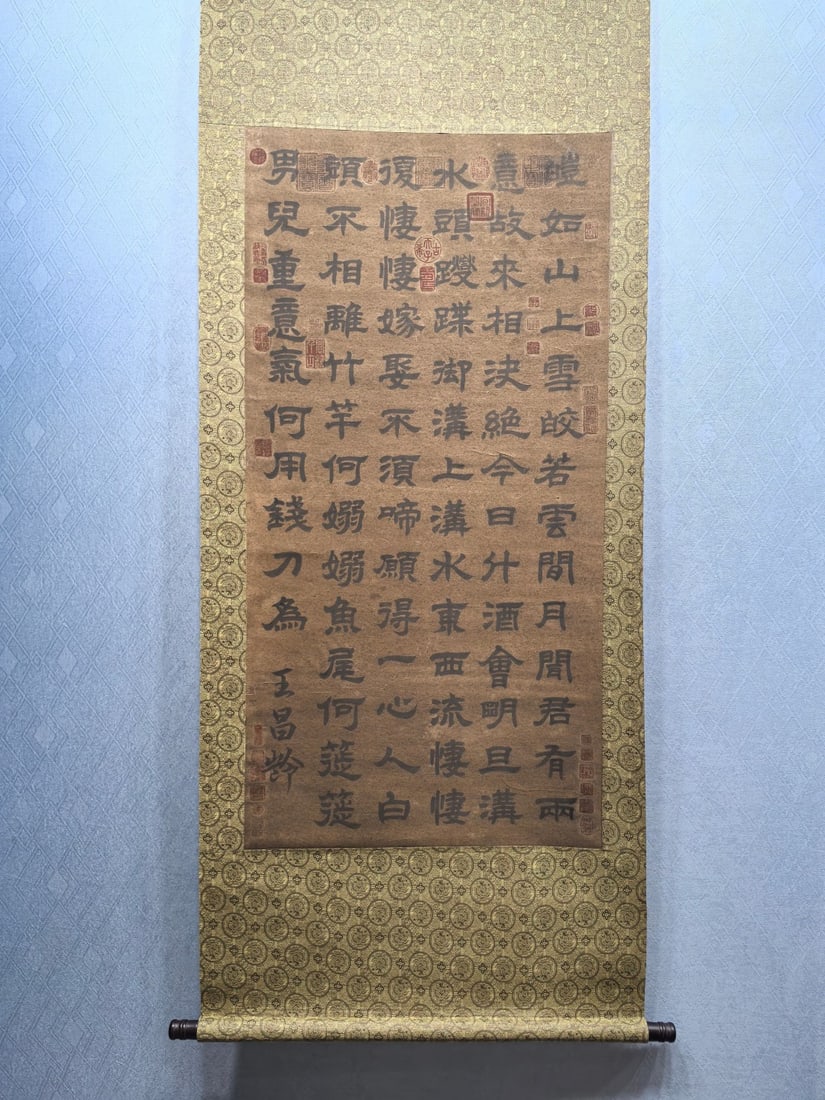 皚如山上雪皎若雲間月聞君有兩
意故來相決絕今日斗酒會明旦溝
水頭躞蹀御溝上溝水東西流悽悽
復悽悽嫁娶不須啼願得一心人白
頭不相離竹竿何嫋嫋魚尾何簁簁
男兒重意氣何用錢刀為
王昌齡